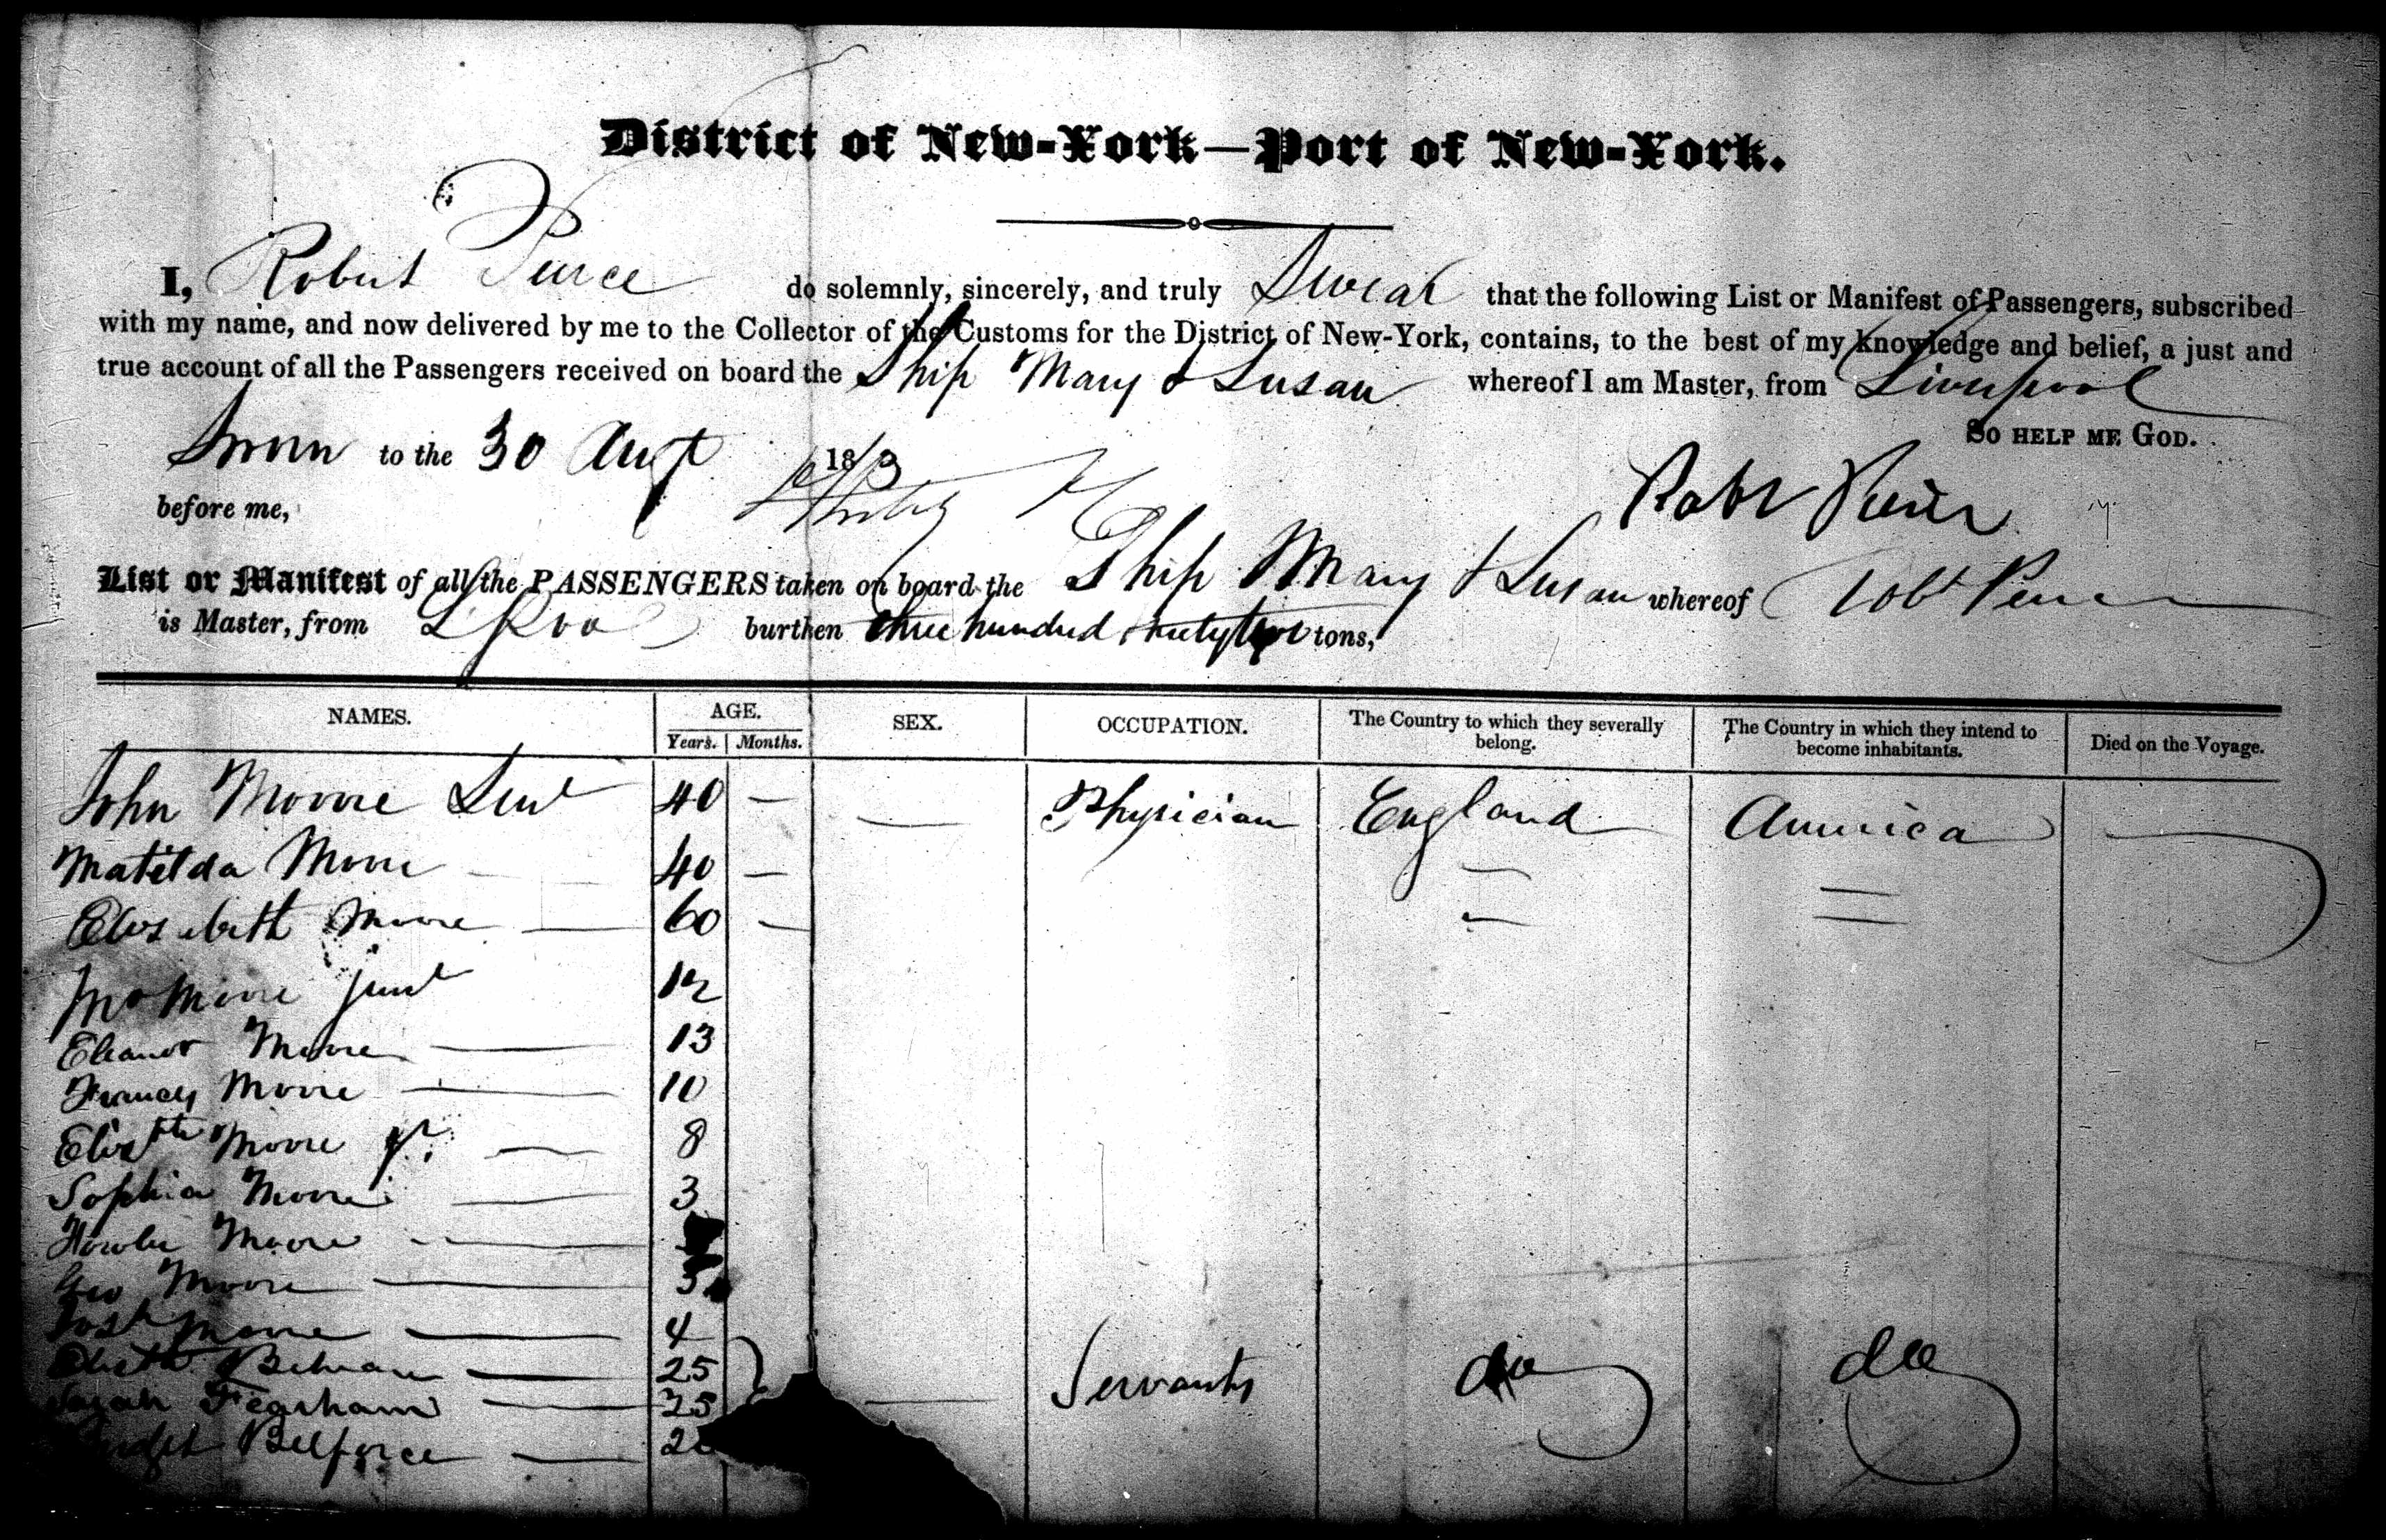 District of New-York—Port of New-York.
I, Robert Pierce do solemnly, sincerely, and truly Swear that the following List or Manifest of Passengers, subscribed
with my name, and now delivered by me to the Collector of the Customs for the District of New-York, contains, to the best of my knowledge and belief, a just and
true account of all the Passengers received on board the Ship Mary & Susan whereof I am Master, from Liverpool
So help me God.
Sworn to the 30 Augt 18
before me,
Robt Pierce
List or Manifest of all the PASSENGERS taken on board the Ship Mary & Susan whereof Robt Pierce
is Master, from LPool burthen three hundred ninety two tons,
NAMES. AGE. SEX. OCCUPATION. The Country to which they severally belong. The Country in which they intend to become inhabitants. Died on the Voyage.
Years. Months.
John Moore Senr 40 — — Physician England America —
Matilda Moore 40 —
Elizabeth Moore — 60 —
Jno Moore junr 12
Eleanor Moore — 13
Frances Moore — 10
Elizth Moore — 8
Sophia Moore — 3
Moore —
Geo Moore — 5
Josh Moore — 4
Elizth — 25
Sarah Fearham — 25 — Servants do do
Belforce — 2